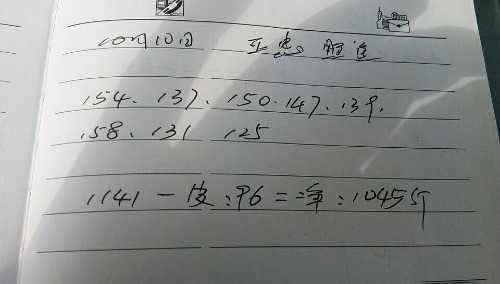 10月10日
154.137.150.147.139.
158.131 125
1141－皮:96=净:1045斤